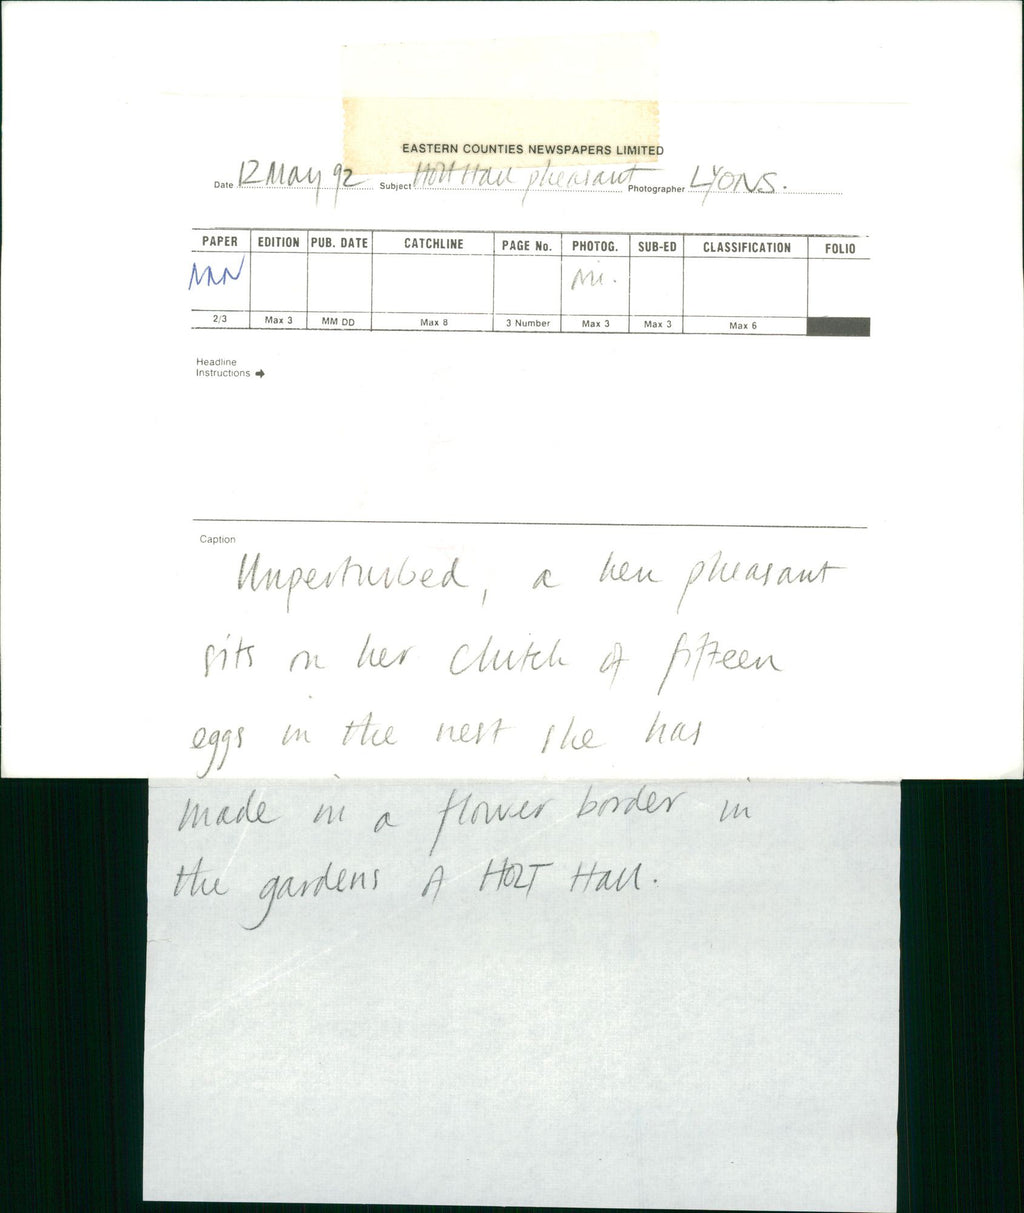 EASTERN COUNTIES NEWSPAPERS LIMITED
Date 12 May 92 Subject Holt Hall pheasant Photographer LYONS.
PAPER EDITION PUB. DATE CATCHLINE PAGE No. PHOTOG. SUB-ED CLASSIFICATION FOLIO
NNN
2/3 Max 3 MM DD Max 8 3 Number Max 3 Max 3 Max 6
Headline
Instructions
Caption
Unperturbed, a hen pheasant
sits on her clutch of fifteen
eggs in the nest she has
made in a flower border in
the gardens of HOLT Hall.